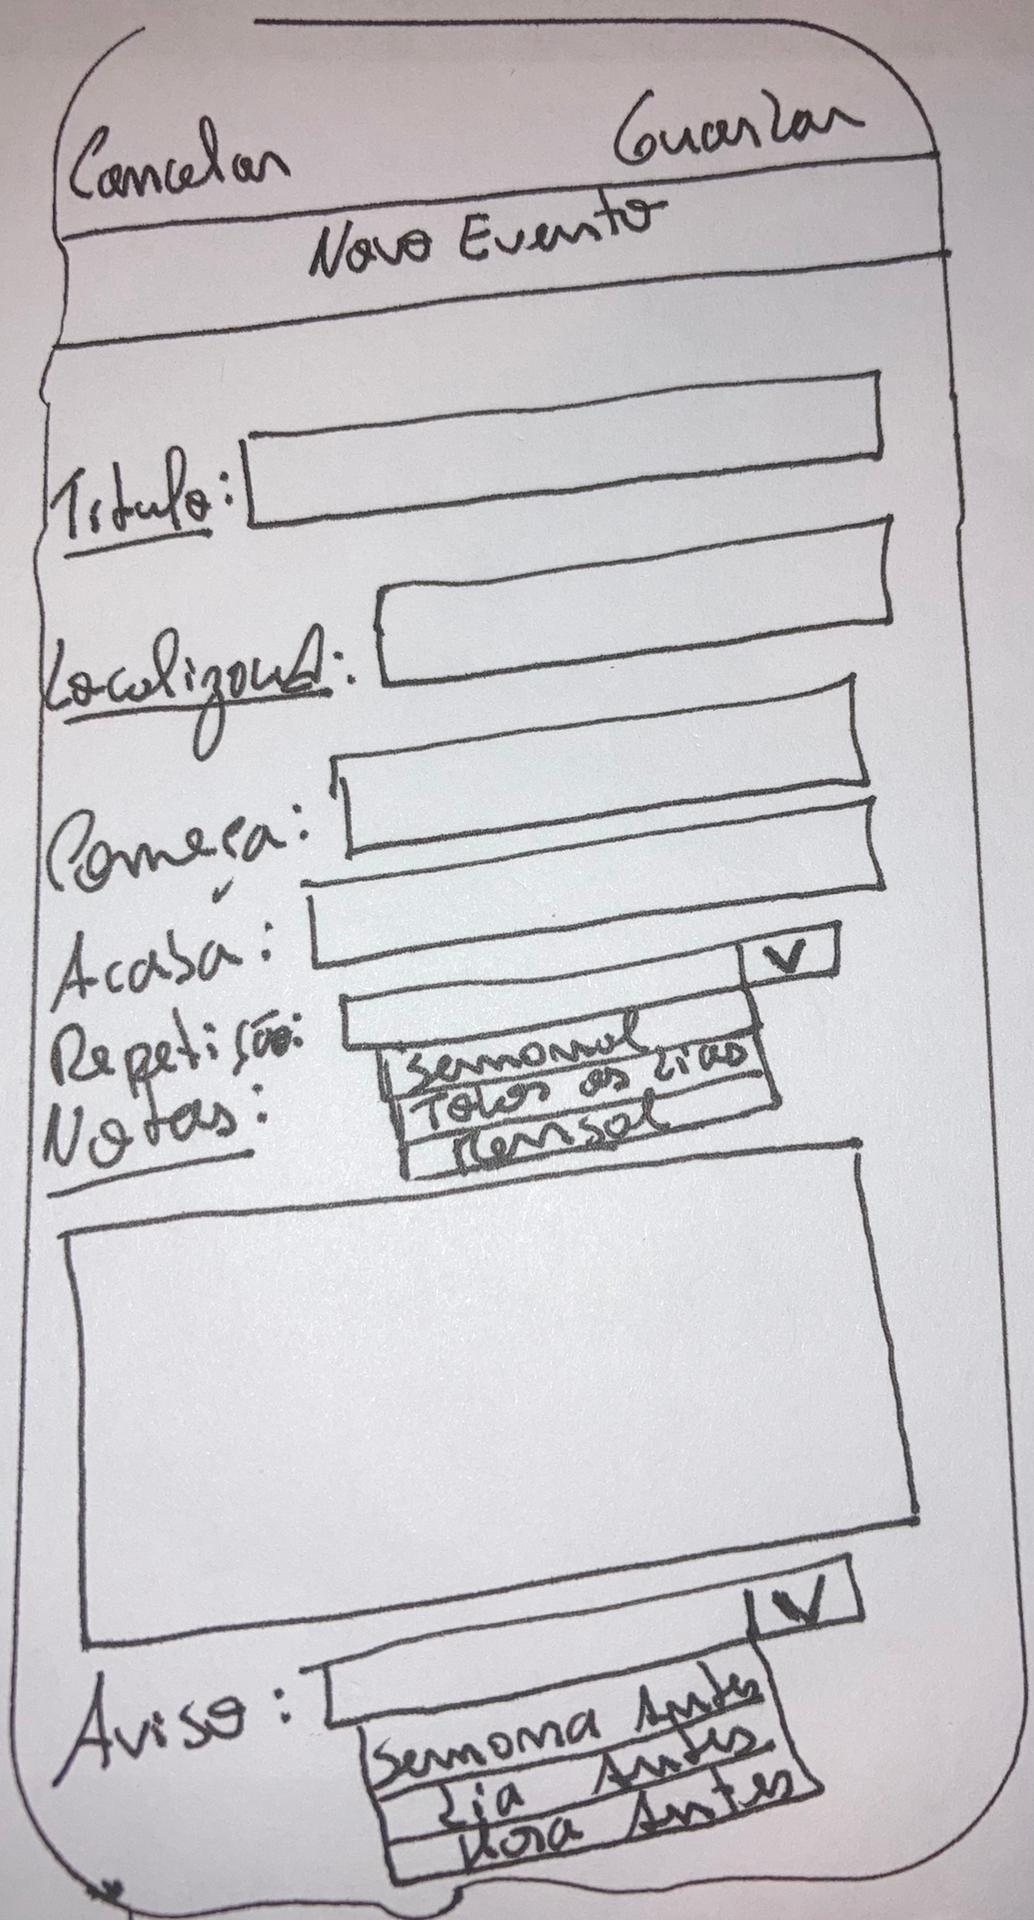 Cancelar Guardar
Novo Evento
Titulo:
Começa:
Acaba:
Repetição:
Semanal
Todos os dias
Mensal
Notas:
Aviso:
Semana Antes
Dia Antes
Hora Antes